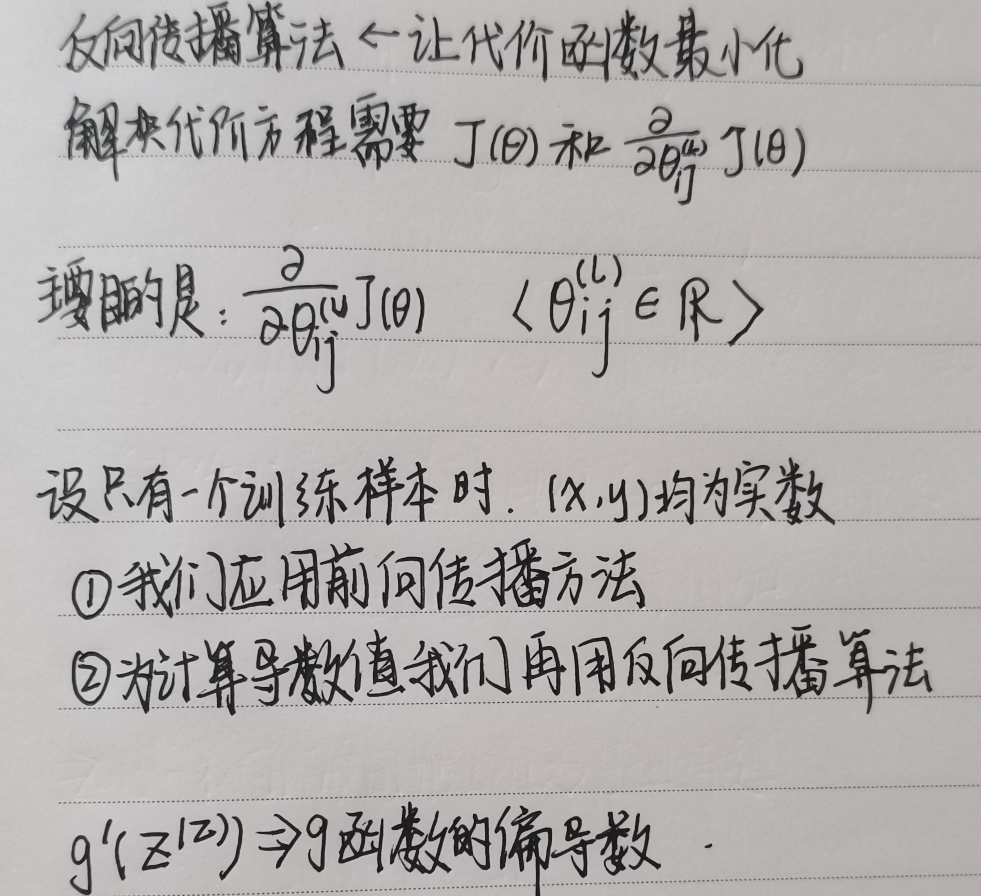 反向传播算法 ← 让代价函数最小化
解决代价方程需要 J(θ) 和 ∂/∂θij^(L) J(θ)
主要目的是: ∂/∂θij^(L) J(θ) 〈θij^(L) ∈ ℝ〉
设只有一个训练样本时. (x,y)均为实数
①我们应用前向传播方法
②为计算导数值我们再用反向传播算法
g'(z^(2)) ⇒ g函数的偏导数.